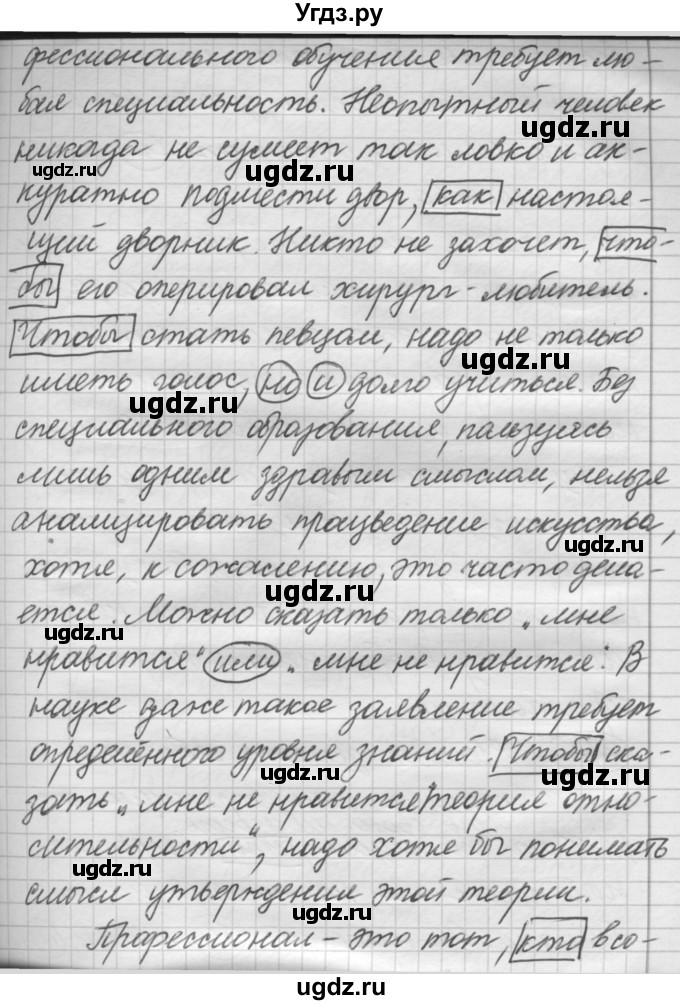 Угдз.ру
фессионального обучения требует лю-
бая специальность. Неопытный человек
ugdz.ru
никогда не сумеет так ловко и ак-
ugdz.ru
куратно подмести двор, как настоя-
щий дворник. Никто не захочет, что-
ugdz.ru
бы его оперировал хирург-любитель.
Чтобы стать певцом, надо не только
ugdz.ru
иметь голос, но и долго учиться. Без
ugdz.ru
специального образования, пользуясь
лишь одним здравым смыслом, нельзя
анализировать процведение искусства,
ugdz.ru
хотя, к сожалению, это часто дела-
ugdz.ru
ется. Можно сказать только „мне
ugdz.ru
нравится“ или „мне не нравится“. В
науке даже такое заявление требует
ugdz.ru
определённого уровня знаний. Чтобы ска-
ugdz.ru
зать „мне не нравится теория отно-
сительности“, надо хотя бы понимать
ugdz.ru
смысл утверждения этой теории.
ugdz.ru
Профессионал – это тот, кто в со-
ugdz.ru